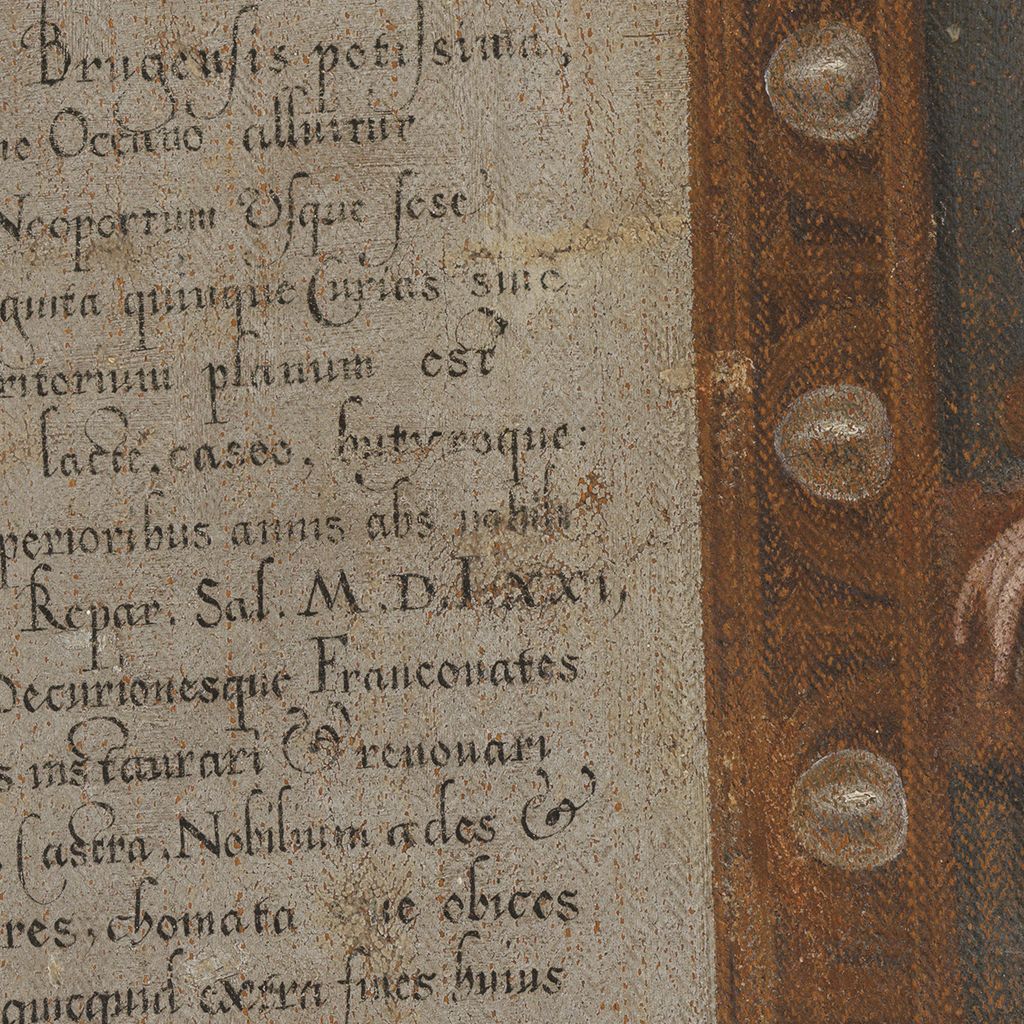 Brugensis potissima,
ne Occano alluitur
Neoportum Usque sese
quinta quinque Curias sine
ritorium planum est
lacte, caseo, butyroque:
perioribus annis abs nobili
Repar. Sal. M.D.LXXI,
Decurionesque Franconates
s instaurari & renouari
Castra, Nobilium ædes &
res, chomata obices
quicquid extra fines huius